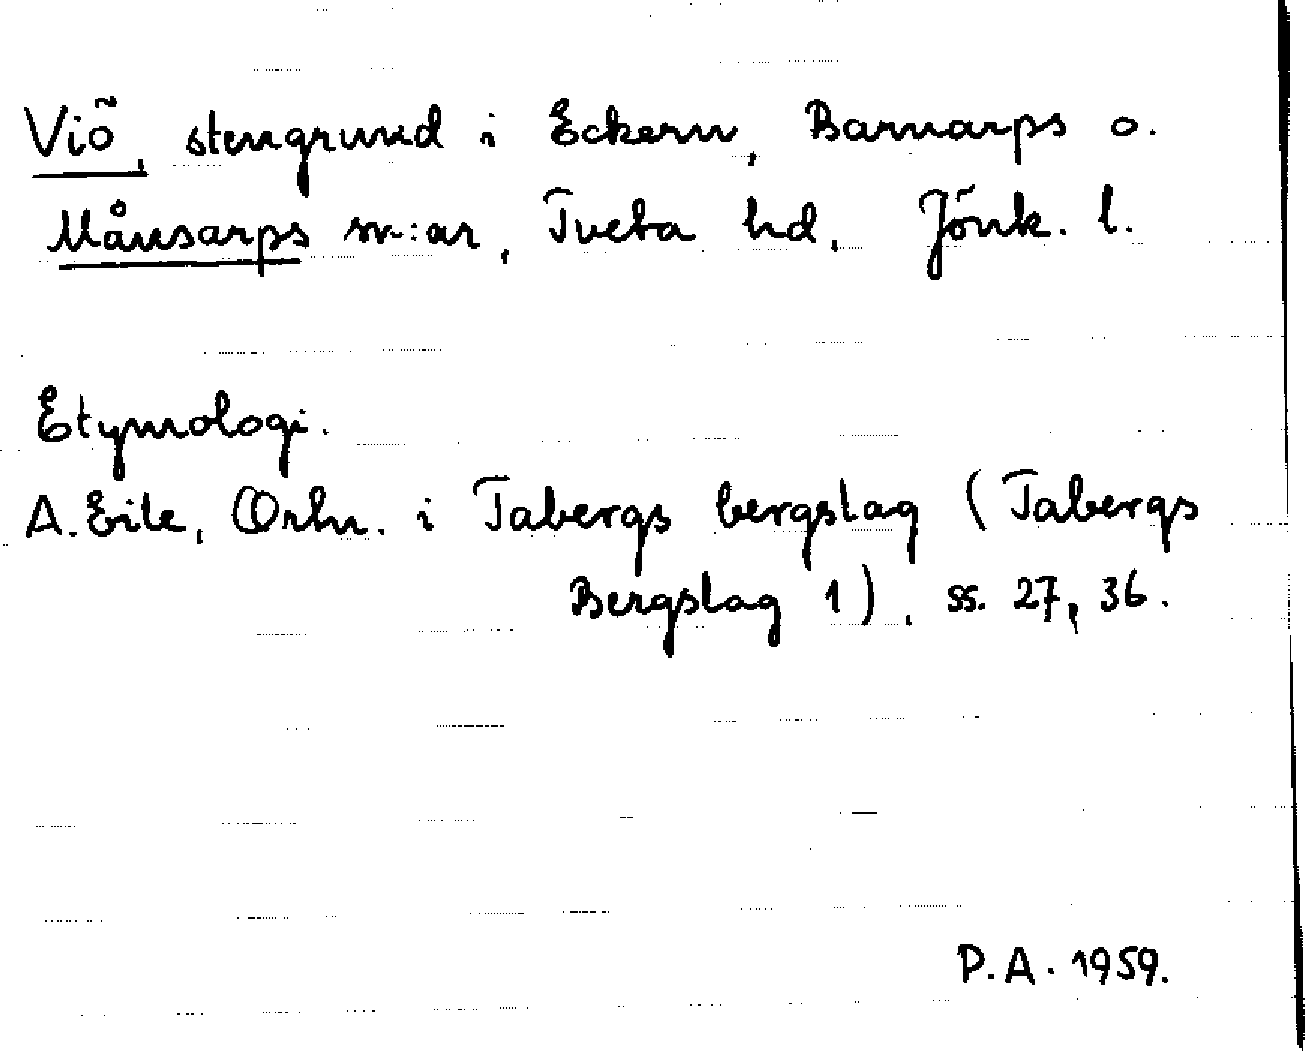 Viö, stengrund i Eckern, Barnarps o.
Månsarps sn:ar, Tveta hd, Jönk. l.
Etymologi.
A. Eile, Ortn. i Tabergs bergslag (Tabergs
Bergslag 1), ss. 27, 36.
P.A. 1959.